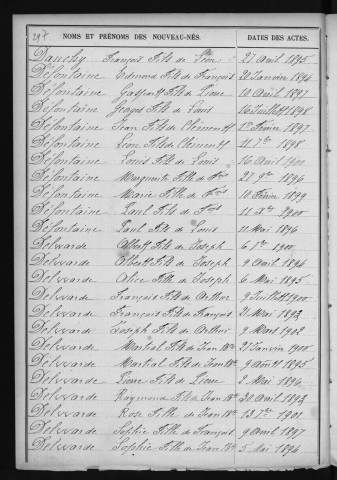 217
NOMS ET PRÉNOMS DES NOUVEAU-NÉS.
DATES DES ACTES.
Dauchy François Fils de Léon 27 Avril 1895
Défontaine Edmond Fils de François 22 Janvier 1894
Défontaine Gaspart Fils de Livie 10 Avril 1897
Défontaine Georges Fils de Louis 16 Juillet 1898
Défontaine Jean Fils de Clément 1er Février 1897
Défontaine Léon Fils de Clément 11 7bre 1898
Défontaine Louis Fils de Louis 16 Avril 1900
Défontaine Marguerite Fille de Fçois 27 9bre 1896
Défontaine Marie Fille de Fçois 10 Février 1899
Défontaine Paul Fils de Fçois 11 Xbre 1900
Défontaine Paul Fils de Louis 11 Mai 1896
Delwarde Albert Fils de Joseph 6 1900
Delwarde Albert Fils de Joseph 9 Avril 1894
Delwarde Alice Fille de Joseph 6 Mai 1895
Delwarde François Fils de Arthur 9 Juillet 1900
Delwarde François Fils de François 21 Mai 1893
Delwarde Joseph Fils de Arthur 9 Mars 1902
Delwarde Martial Fils de Jean Bte 27 Janvier 1900
Delwarde Martial Fils de Jean Bte 9 Août 1895
Delwarde Pierre Fils de Pierre 2 Mai 1896
Delwarde Raymond Fils de Jean Bte 30 Avril 1893
Delwarde Rose Fille de Jean Bte 13 7bre 1901
Delwarde Sophie Fille de François 9 Avril 1897
Delwarde Sophie Fille de Jean Bte 5 Mai 1894